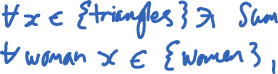 ∀x ∈ {triangles} ∋ Sum
∀ woman x ∈ {women},